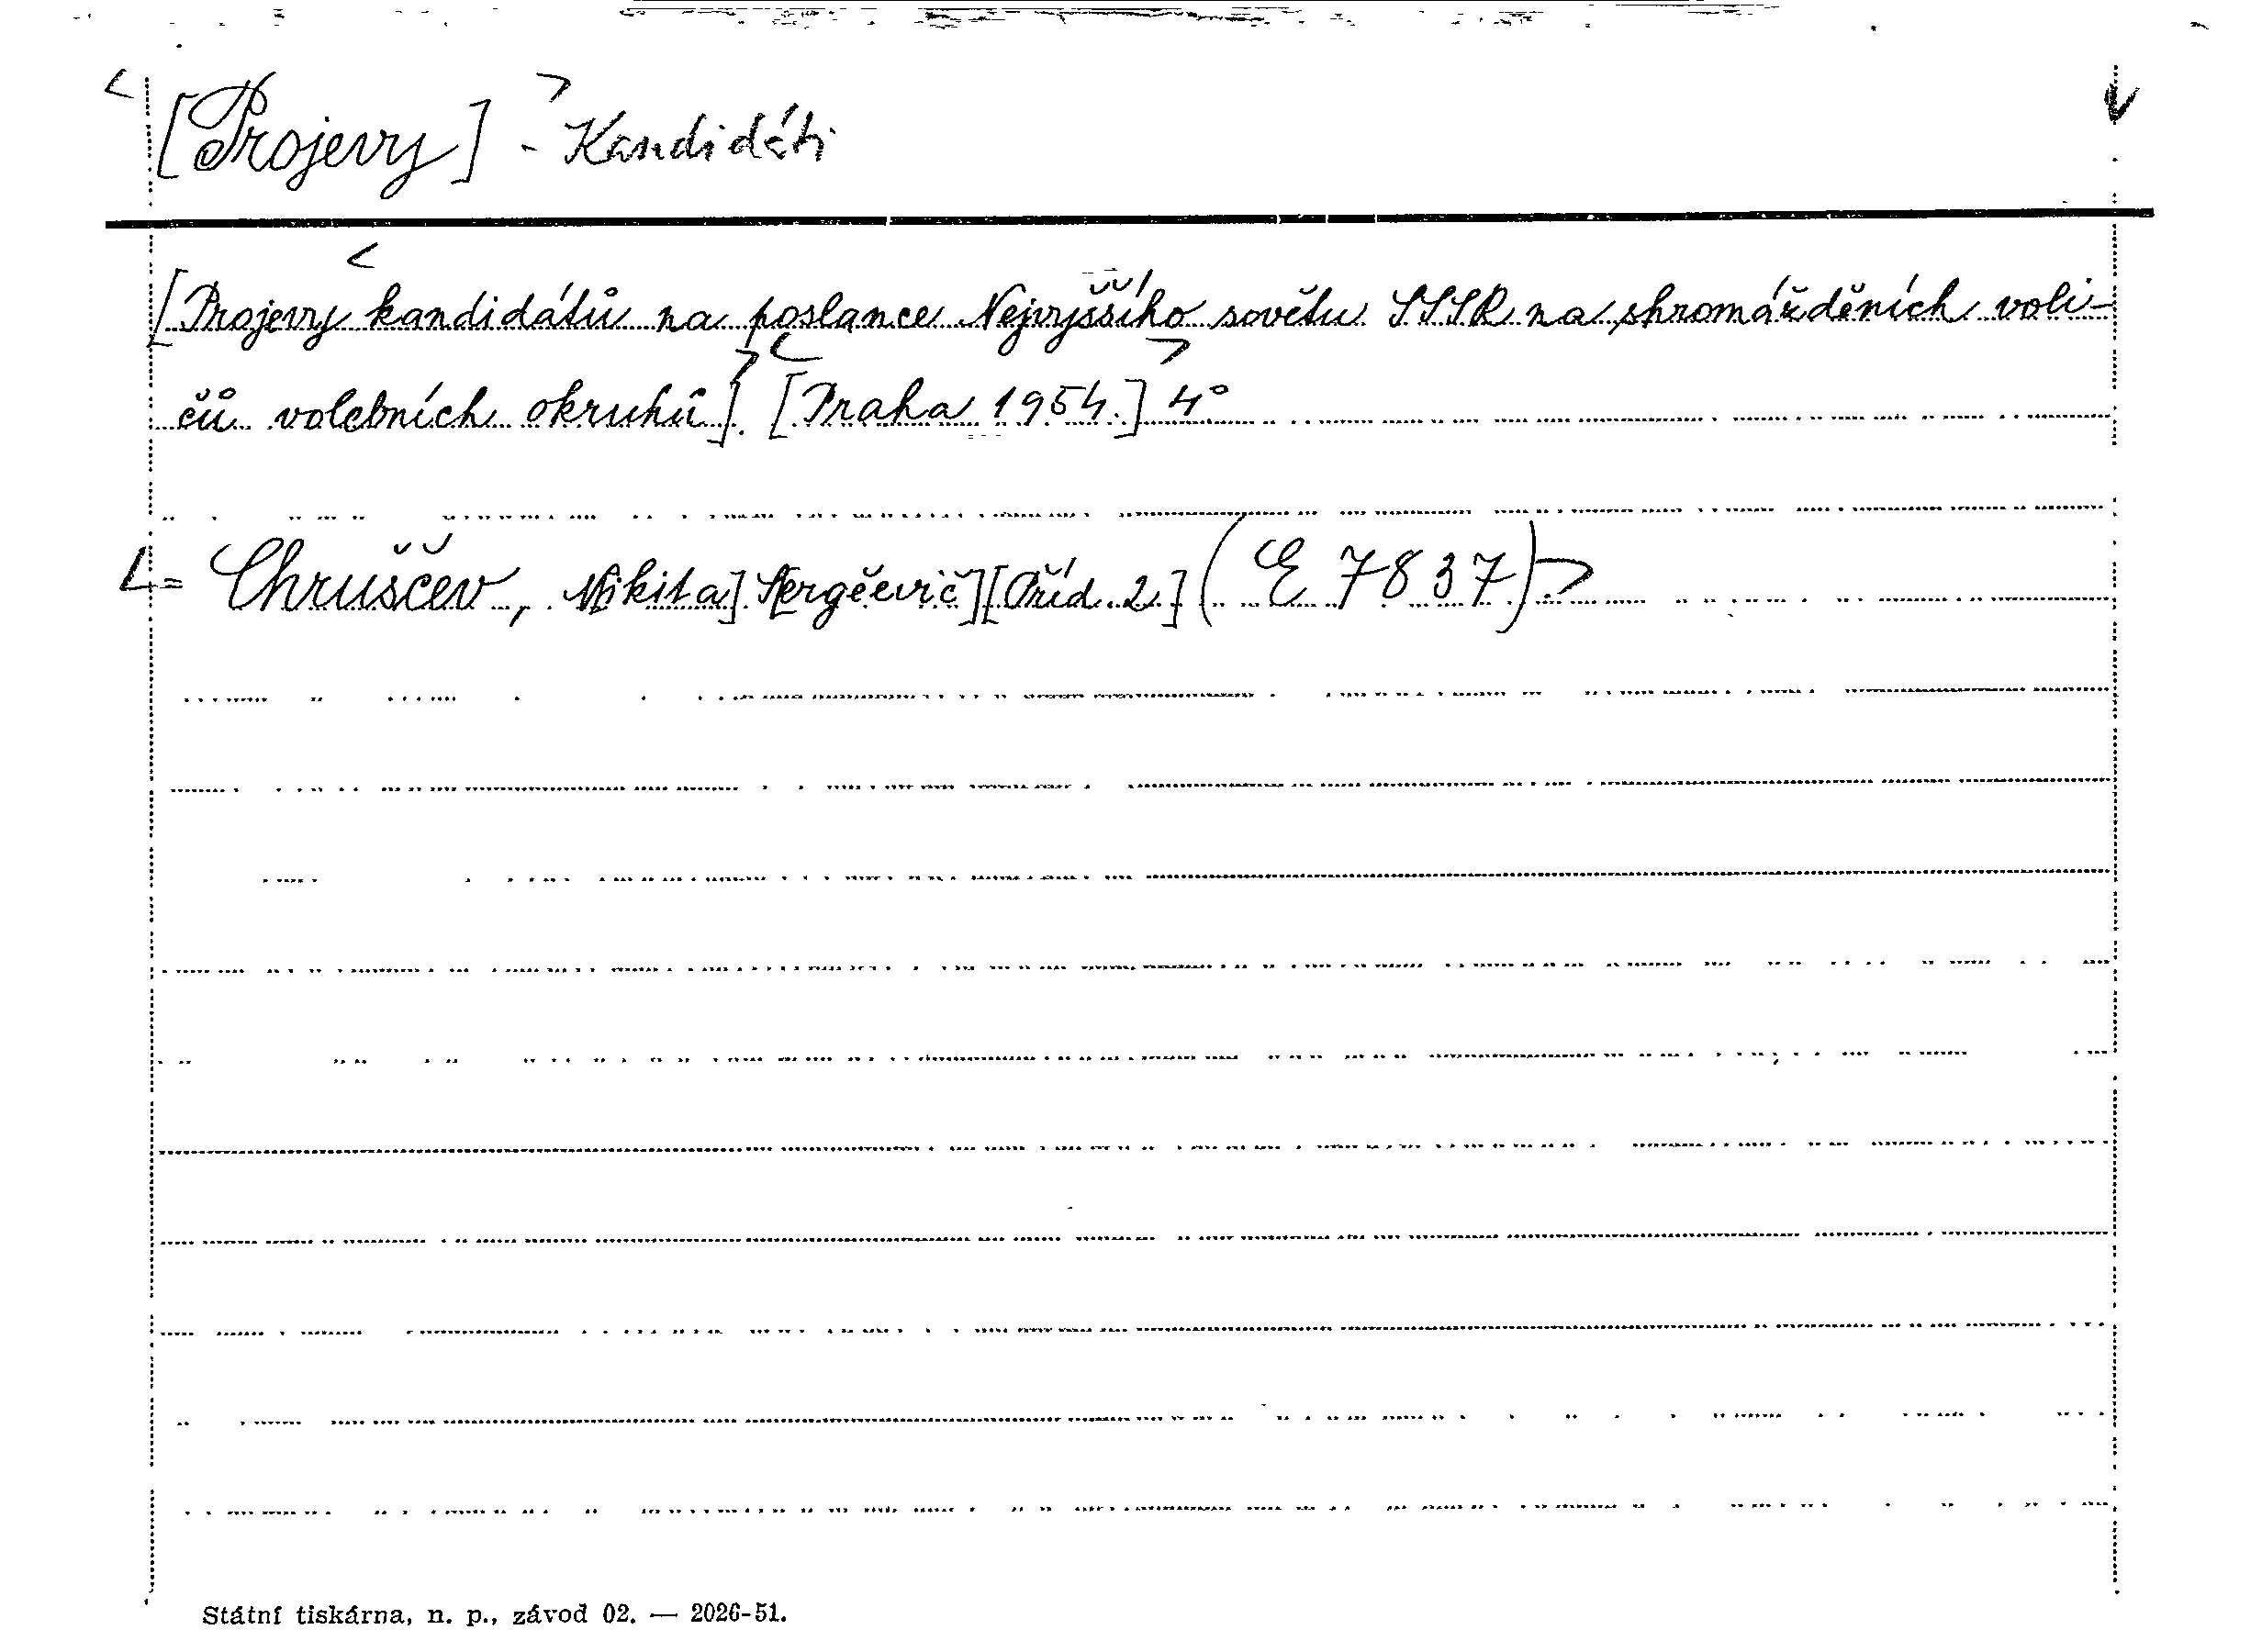 < [Projevy] > - Kandidáti
[Projevy < kandidátů na poslance Nejvyššího sovětu SSSR na shromážděních voli-
čů volebních okruhů] > < [Praha 1954.] > 4°
< = Chruščev, N[ikita] S[ergěevič] [Příd. 2] (E 7837) >
Státní tiskárna, n. p., závod 02. — 2026-51.